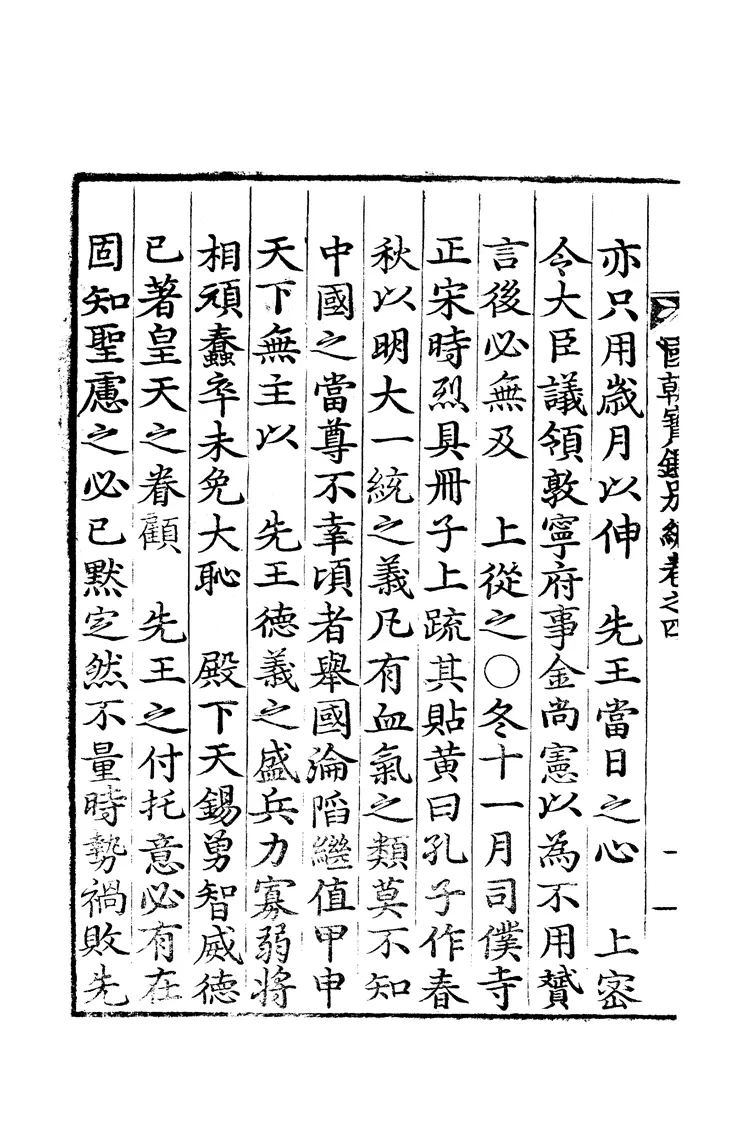 國朝寶鑑別編卷之四
一
亦只用歲月以伸　先王當日之心　上密
令大臣議領敦寧府事金尚憲以為不用贊
言後必無及　上從之○冬十一月司僕寺
正宋時烈具冊子上疏其貼黄曰孔子作春
秋以明大一統之義凡有血氣之類莫不知
中國之當尊不幸頃者舉國淪陷繼值甲申
天下無主以　先王德義之盛兵力寡弱將
相頑蠢卒未免大恥　殿下天錫勇智威德
已著皇天之眷顧　先王之付托意必有在
固知聖慮之必已默定然不量時勢禍敗先